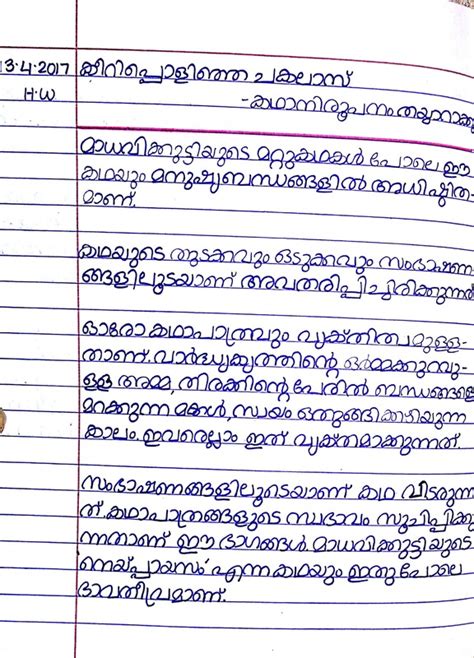 13·4·2017 കീറിപ്പൊളിഞ്ഞ ചകലാസ്
H·W - കഥാനിരൂപനം തയ്യാറാക്കു
മാധവിക്കുട്ടിയുടെ മറ്റുകഥകൾ പോലെ ഈ
കഥയും മനുഷ്യബന്ധങ്ങളിൽ അധിഷ്ഠിത-
മാണ്.
കഥയുടെ തുടക്കവും ഒടുക്കവും സംഭാഷണ-
ങ്ങളിലൂടയാണ് അവതരിപ്പിച്ചിരിക്കുന്നത്
ഓരോ കഥാപാത്രവും വ്യക്തിത്വമുള്ള-
താണ്. വാർദ്ധക്യത്തിന്റെ ഓർമ്മക്കുറവു-
ള്ള അമ്മ, തിരക്കിന്റെ പേരിൽ ബന്ധങ്ങളെ
മറക്കുന്ന മക്കൾ, സ്വയം ഒതുങ്ങിക്കഴിയുന്ന
കാലം. ഇവരെല്ലാം ഇത് വ്യക്തമാക്കുന്നത്.
സംഭാഷണങ്ങളിലൂടെയാണ് കഥ വിടരുന്ന
ത്. കഥാപാത്രങ്ങളുടെ സ്വഭാവം സൂചിപ്പിക്കു
ന്നതാണ് ഈ ഭാഗങ്ങൾ. മാധവിക്കുട്ടിയുടെ
നെയ്പ്പായസം എന്ന കഥയും ഇതുപോലെ
ഭാവതീവ്രമാണ്.